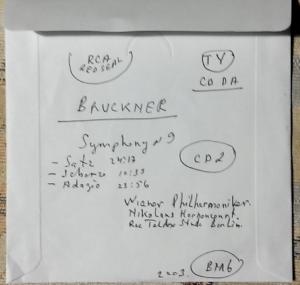 RCA
RED SEAL
TY
CD DA
BRUCKNER
Symphony N 9
CD2
- Satz
- Scherzo
- Adagio
Wiener Philharmoniker
Nikolaus Harnoncourt
Rec Teldex Studio Berlin.
2003.
BM6